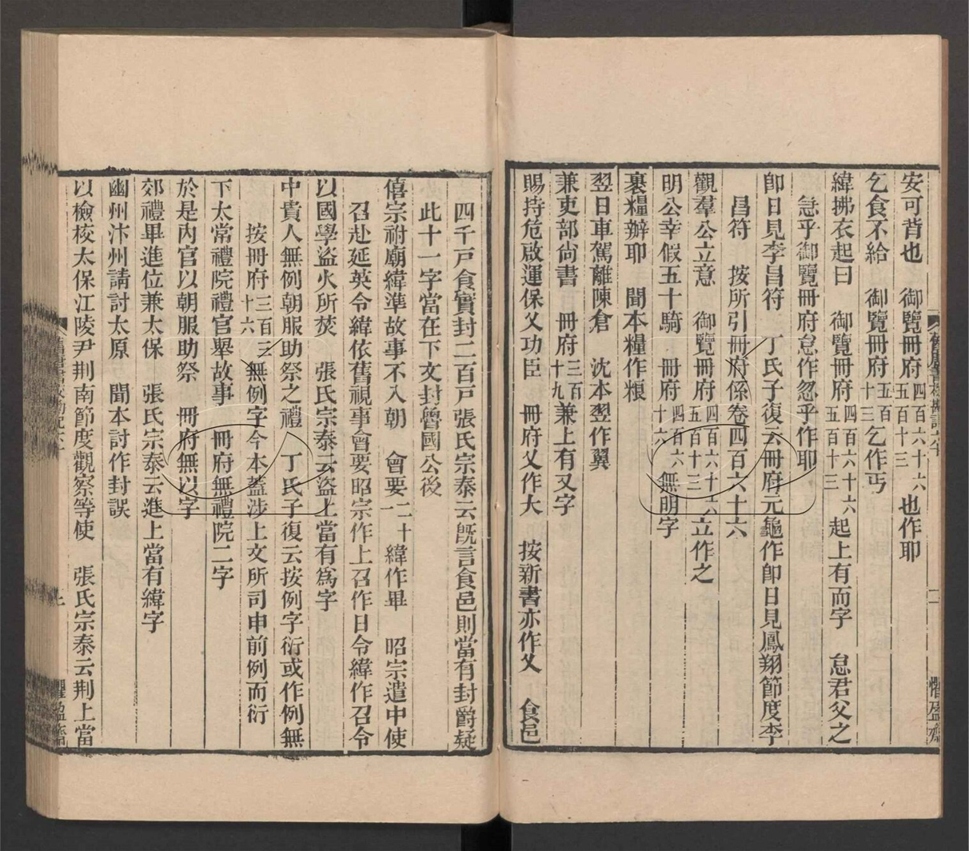 安可昔也　御覽冊府四百六十六五百十三也作耶
乞食不給　御覽冊府五百十三乞作丐
緯拂衣起曰　御覽冊府四百六十六五百十三起上有而字　怠君父之
急乎御覽冊府怠作忽乎作耶
卽日見李昌符　丁氏子復云冊府元龜作卽日見鳳翔節度李
昌符　按所引冊府係卷四百六十六
觀羣公立意　御覽冊府四百六十六五百十三立作之
明公幸假五十騎　冊府四百六十六無明字
裹糧辦耶　聞本糧作粮
翌日車駕離陳倉　沈本翌作翼
兼吏部尙書　冊府三百十九兼上有又字
賜持危啟運保乂功臣　冊府乂作大　按新書亦作乂　食邑
懼盈齋
四千戸食實封二百戸張氏宗泰云旣言食邑則當有封爵疑
此十一字當在下文封魯國公後
僖宗祔廟緯準故事不入朝　會要二十一緯作畢　昭宗遣中使
召赴延英令緯依舊視事會要昭宗作上召作日令緯作召令
以國學盜火所焚　張氏宗泰云盜上當有爲字
中貴人無例朝服助祭之禮　丁氏子復云按例字衍或作例無
按冊府三百三十六無例字今本蓋涉上文所司申前例而衍
下太常禮院禮官舉故事　冊府無禮院二字
於是內官以朝服助祭　冊府無以字
郊禮畢進位兼太保　張氏宗泰云進上當有緯字
幽州汴州請討太原　聞本討作封誤
以檢校太保江陵尹荆南節度觀察等使　張氏宗泰云荆上當
懼盈齋